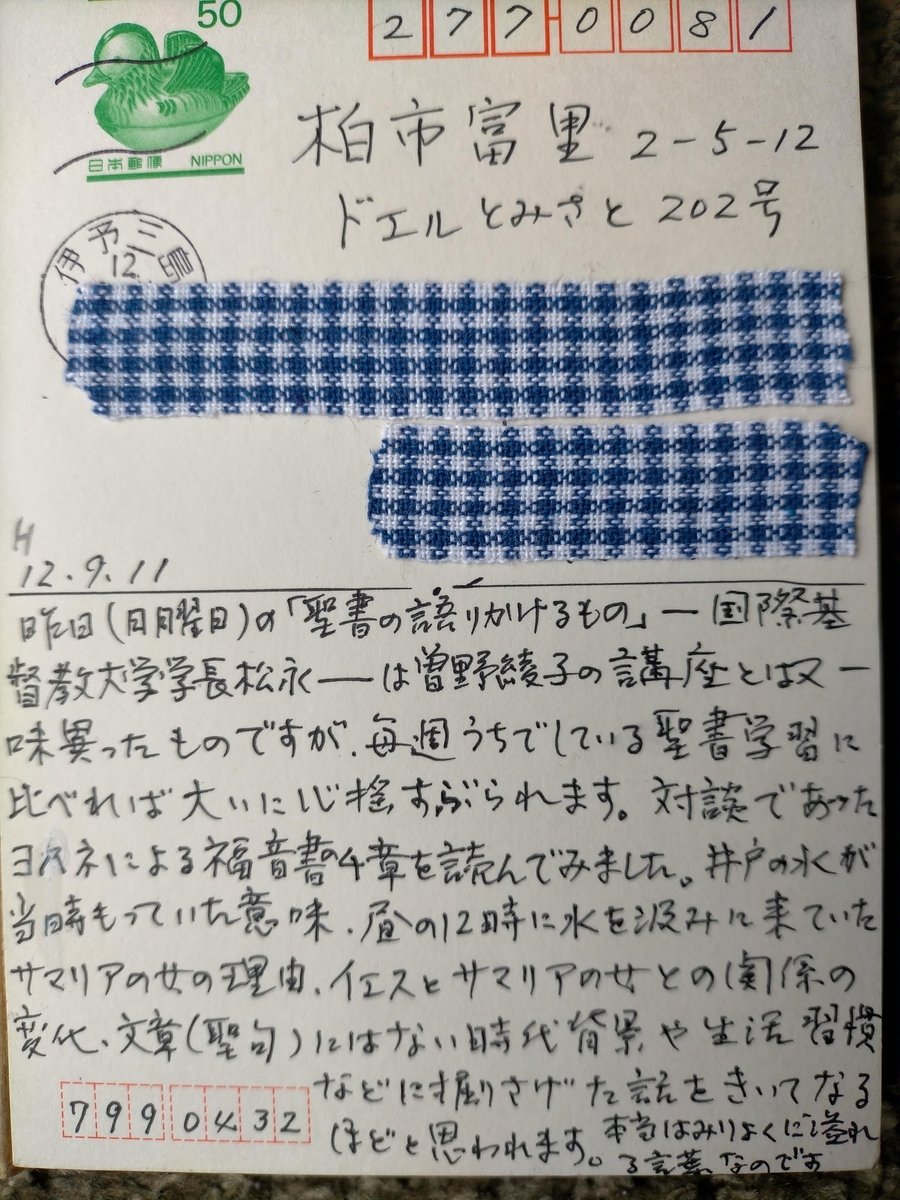 50
日本郵便 NIPPON
277-0081
柏市富里 2-5-12
ドエルとみさと 202号
伊予三島
12.
H
12.9.11
昨日(日月曜日)の「聖書の語りかけるもの」― 国際基
督教大学学長松永 ― は曽野綾子の講座とは又一
味異ったものですが、毎週うちでしている聖書学習に
比べれば大いに心揺すぶられます。対談であった
ヨハネによる福音書の4章を読んでみました。井戸の水が
当時もっていた意味、昼の12時に水を汲みに来ていた
サマリアの女の理由、イエスとサマリアの女との関係の
変化、文章(聖句)にはない時代背景や生活習慣
などに掘りさげた話をきいてなる
ほどと思われます。本当はみりよくに溢れ
る言葉なのです
7990432